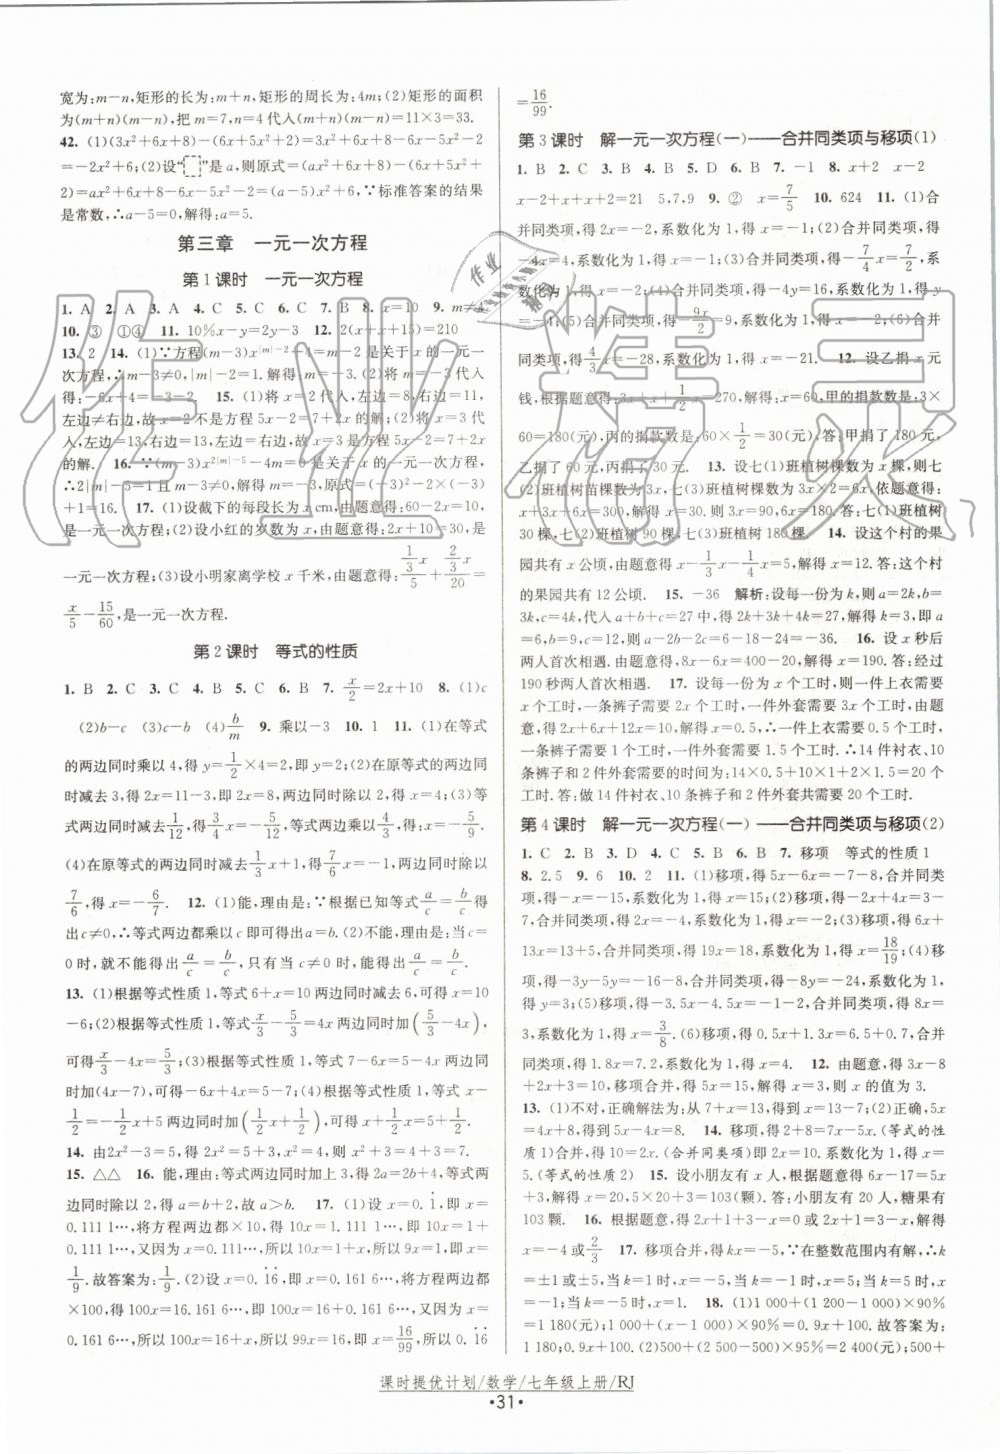 宽为:m－n,矩形的长为:m＋n,矩形的周长为:4m;(2)矩形的面积
为(m＋n)(m－n),把 m=7,n=4代入(m＋n)(m－n)=11×3=33.
42. (1)(3x²＋6x＋8)－(6x＋5x²＋2)=3x²＋6x＋8－6x－5x²－2
=－2x²＋6;(2)设“□”是 a,则原式=(ax²＋6x＋8)－(6x＋5x²＋2)
=ax²＋6x＋8－6x－5x²－2=(a－5)x²＋6,∵标准答案的结果
是常数,∴a－5=0,解得:a=5.
第三章 一元一次方程
第1课时 一元一次方程
1. A 2. A 3. A 4. C 5. C 6. C 7. B 8. x=10 9. m≠
10. ③ ①④ 11. 10%x－y=2y－3 12. 2(x＋x＋15)=210
13. 2 14. (1)∵方程(m－3)x^{|m|－2}＋4=m是关于 x 的一元一
次方程,∴m－3≠0,|m|－2=1.解得:m=－3.将m=－3代入
得:－6x＋4=－3－2 15. (1)将 x=2代入,左边=8,右边=11,
左边≠右边,故 x=2不是方程 5x－2=7＋2x 的解;(2)将 x=3代
入,左边=13,右边=13,左边=右边,故 x=3是方程 5x－2=7＋2x
的解. 16. ∵(m－3)x^{2|m|－5}－4m=0是关于 x 的一元一次方程,
∴2|m|－5=1且m－3≠0,解得:m=－3.
＋1=16. 17. (1)设截下的每段长为 x cm,由题意得:60－2x=10,
是一元一次方程;(2)设小红的岁数为 x,由题意得:2x＋10=30,是
一元一次方程;(3)设小明家离学校 x 千米,由题意得:(1/3 x)/5＋(2/3 x)/20=
x/5－15/60,是一元一次方程.
第2课时 等式的性质
1. B 2. C 3. C 4. C 5. B 6. B 7. x/2=2x＋10 8. (1)c
(2)b－c (3)c－b (4)b/m 9. 乘以－3 10. 1 11. (1)在等式
的两边同时乘以4,得 y=1/2×4=2,即 y=2;(2)在原等式的两边
同时减去3,得 2x=11－3,即 2x=8,两边同时除以2,得 x=4;(3)等
式两边同时减去1/12,得3/4x=－5/12,等式两边同时除以3/4,得 x=－5/9.
(4)在原等式的两边同时减去1/3x＋1,得1/3x－1/2x=1,两边同时除以
7/6,得 x=－6/7. 12. (1)能,理由是:∵根据已知等式a/c=b/c,得
出c≠0,∴等式两边都乘以 c 即可得出a=b.(2)不能,理由是:当c=
0时,就不能从a=b得出a/c=b/c,只有当 c≠0时,才能得出a/c=b/c.
13. (1)根据等式性质1,等式6＋x=10两边同时减去6,可得 x=10
－6;(2)根据等式性质1,等式x/3－5/3=4x两边同时加(5/3－4x),
可得x/3－4x=5/3;(3)根据等式性质1,等式 7－6x=5－4x 两边同
时加(4x－7),可得－6x＋4x=5－7;(4)根据等式性质1,等式 x－
1/2=－1/2x＋5两边同时加(1/2x＋1/2),可得 x＋1/2x=5＋1/2.
14. 由2x²－3=5,得 2x²=5＋3,即 x²=4,则 x²＋3=4＋3=7.
15. △△ 16. 能,理由:等式两边同时加上3,得 2a=2b＋4,等式两
边同时除以2,得 a=b＋2,故 a＞b. 17. (1)设 x=0.1̇,即 x=
0.111 1⋯,将方程两边都×10,得 10x=1.111 1⋯,即 10x=1＋
0.111 1⋯,又x=0.111 1⋯,所以 10x=1＋x,所以 9x=1,即 x=
1/9.故答案为:1/9.(2)设 x=0.1̇6̇,即 x=0.161 6⋯,将方程两边都
×100,得 100x=16.161 6⋯,即 100x=16＋0.161 6⋯,又x=
0.161 6⋯,所以 100x=16＋x,所以 99x=16,即 x=16/99,所以 0.1̇6̇
=16/99.
第3课时 解一元一次方程(一)——合并同类项与移项(1)
1. B 2. C 3. B 4. B 5. D 6. B 7. －1 8. x＋2 x－2
x－2＋x＋x＋2=21 5,7,9 9. ② x=7/5 10. 624 11. (1)合
并同类项,得 2x=－2,系数化为1,得 x=－1;(2)合并同类项,得
－4x=4,系数化为1,得 x=－1;(3)合并同类项,得－7/4x=7/4,系
数化为1,得 x=－1;(4)合并同类项,得－4y=16,系数化为1,得 y
=－4;(5)合并同类项,得－9x/2=9,系数化为1,得 x=－2;(6)合并
同类项,得4/3x=－28,系数化为1,得 x=－21. 12. 设乙捐 x 元
钱,根据题意得:3x＋x＋1/2x=270,解得:x=60,甲的捐款数是:3×
60=180(元),丙的捐款数是:60×1/2=30(元).答:甲捐了180元,
乙捐了60元,丙捐了30元. 13. 设七(1)班植树棵数为 x 棵,则七
(2)班植树苗棵数为3x,七(3)班植树棵数为3x×2=6x.依题意得:
x＋3x＋6x=300,解得:x=30.则3x=90,6x=180.答:七(1)班植树30
棵,七(2)班植树90棵,七(3)班植树180棵. 14. 设这个村的果
园共有 x 公顷,由题意得:x－1/3x－1/4x=5,解得 x=12.答:这个村
的果园共有12公顷. 15. －36 解析:设每一份为 k,则 a=2k,b=
3k,c=4k,代入 a＋b＋c=27中,得 2k＋3k＋4k=27,解得 k=3,即 a
=6,b=9,c=12,∴a－2b－2c=6－18－24=－36. 16. 设 x 秒后
两人首次相遇.由题意得,8x－6x=400－20,解得 x=190.答:经过
190秒两人首次相遇. 17. 设每一件衬衣需要 x 个工时,则一件上衣需要
x 个工时,一条裤子需要2x个工时,一件外套需要3x个工时,由题
意,得 2x＋6x＋12x=10,解得 x=0.5,∴一件上衣需要0.5个工时,
一条裤子需要1个工时,一件外套需要1.5个工时.∴14件衬衣、10
条裤子和2件外套需要的工时为:14×0.5＋10×1＋2×1.5=20个
工时.答:做14件衬衣、10条裤子和2件外套需用去20个工时.
第4课时 解一元一次方程(一)——合并同类项与移项(2)
1. C 2. B 3. D 4. C 5. C 6. B 7. 移项 等式的性质1
8. 2.5 9. 6 10. 2 11. (1)移项,得 5x－6x=－7－8,合并同类
项,得－x=－15,系数化为1,得 x=15;(2)移项,得－2x＋4x=3－
7,合并同类项,得 2x=－4,系数化为1,得 x=－2;(3)移项,得 6x＋
13x=13＋5,合并同类项,得 19x=18,系数化为1,得 x=18/19;(4)移
项,得－3y－5y=－16－8,合并同类项,得－8y=－24,系数化为1,
得 y=3;(5)移项,得－3.5x－4.5x=－1－2,合并同类项,得 8x=
3,系数化为1,得 x=3/8.(6)移项,得 0.5x＋1.3x=6.5＋0.7,合并
同类项,得 1.8x=7.2,系数化为1,得 x=4. 12. 由题意,得 3x－8
＋2x＋3=10,移项合并,得 5x=15,解得 x=3,则 x 的值为3.
13. (1)不对,正确解法为:从 7＋x=13,得到 x=13－7;(2)正确,5x
=4x＋8,得到 5x－4x=8. 14. 移项,得 2＋8=7x－5x.(等式的性
质1)合并,得 10=2x.(合并同类项)即 2x=10.系数化为1,得 x=
5.(等式的性质2) 15. 设小朋友有 x 人,根据题意得 6x－17=5x
＋3,解得 x=20,5×20＋3=103(颗).答:小朋友有20人,糖果有
103颗. 16. 根据题意,得 2＋3－x=0或2＋3x－x=0,解得
x=－4或2/3 17. 移项合并,得 kx=－5,∵在整数范围内有解,∴k=
±1或±5,当k=1时,x=－5;当k=－1时,x=5;当 k=5时,x=
－1;当 k=－5时,x=1. 18. (1)1 000＋(1 200－1 000)×90%=
1 180(元);1 000＋(x－1 000)×90%=0.9x＋100.故答案为:
1 180(元),0.9x＋100.(2)500×2－(500×2－800)×10%=980,500＋
课时提优计划/数学/七年级上册/RJ
·31·